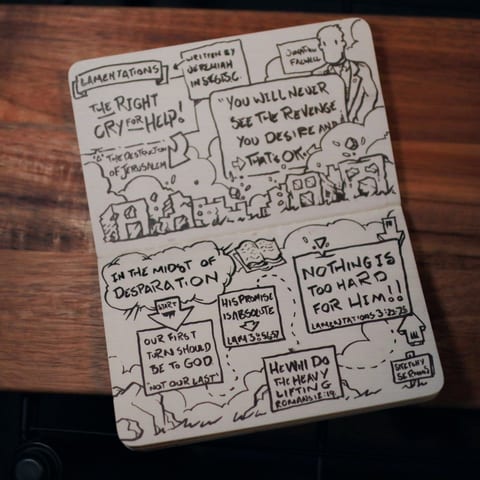 LAMENTATIONS
WRITTEN BY
JEREMIAH
IN 586 B.C.
JONATHAN
FALWELL
THE RIGHT
CRY FOR HELP!
THE DESTRUCTION
OF JERUSALEM
"YOU WILL NEVER
SEE THE REVENGE
YOU DESIRE AND
THAT'S OK.
IN THE MIDST OF
DESPARATION
START
OUR FIRST
TURN SHOULD
BE TO GOD
"NOT OUR LAST"
HIS PROMISE
IS ABSOLUTE
LAM 3:55-57
NOTHING IS
TOO HARD
FOR HIM!!
LAMENTATIONS 3:22-25
HE WILL DO
THE HEAVY
LIFTING
ROMANS 12:19
SKETCHY
SERMONS